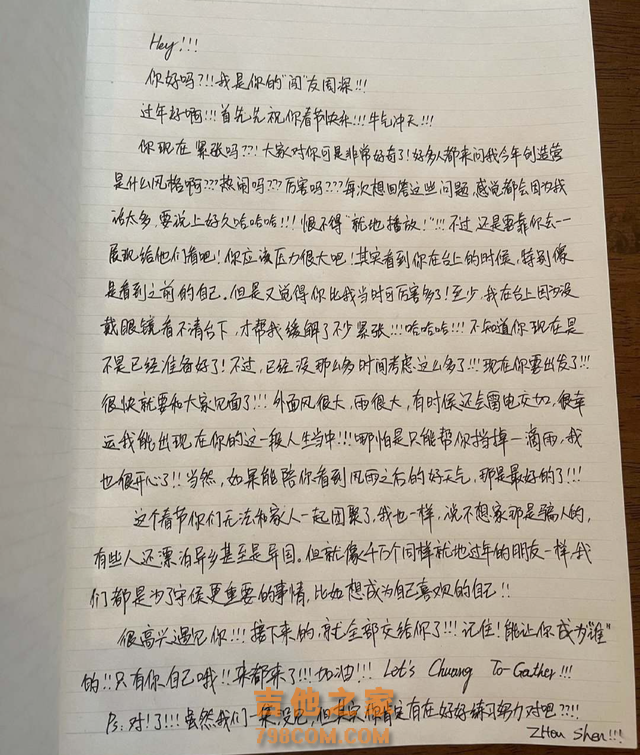 Hey!!!
你好吗?!!我是你的"闰"友周深!!!
过年好啊!!!首先先祝你春节快乐!!!牛气冲天!!!
你现在紧张吗??!大家对你可是非常好奇了!好多人都来问我今年创造营
是什么风格啊???热闹吗???厉害吗???每次想回答这些问题,感觉都会因为我
话太多,要说上好久哈哈哈!!!恨不得"就地播放!"!!不过还是要靠你去一一
展现给他们看吧!你应该压力很大吧!其实看到你在台上的时候,特别像
是看到之前的自己。但是又觉得你比我当时可厉害多了!至少,我在台上因为没
戴眼镜看不清台下,才帮我缓解了不少紧张!!!哈哈哈!!!不知道你现在是
不是已经准备好了!不过,已经没那么多时间考虑这么多了!!!现在你要出发了!!!
很快就要和大家见面了!!!外面风很大,雨很大,有时候还会雷电交加,很幸
运我能出现在你的这一段人生当中!!!哪怕是只能帮你挡掉一滴雨,我
也很开心了!!当然,如果能陪你看到风雨之后的好天气,那是最好的了!!!
这个春节你们无法和家人一起团聚了,我也一样,说不想家那是骗人的,
有些人还漂泊异乡甚至是异国。但就像千万个同样就地过年的朋友一样,我
们都是为了守候更重要的事情,比如想成为自己喜欢的自己!!
很高兴遇见你!!!接下来的,就全部交给你了!!!记住!能让你成为"谁"
的!!只有你自己哦!!来都来了!!!加油!!!Let's Chuang To-Gather!!!
Ps:对!了!!!虽然我们一条没见,但其实你肯定有在好好练习努力对吧??!!
ZHou Shen!!!
吉他之家
798COM.COM